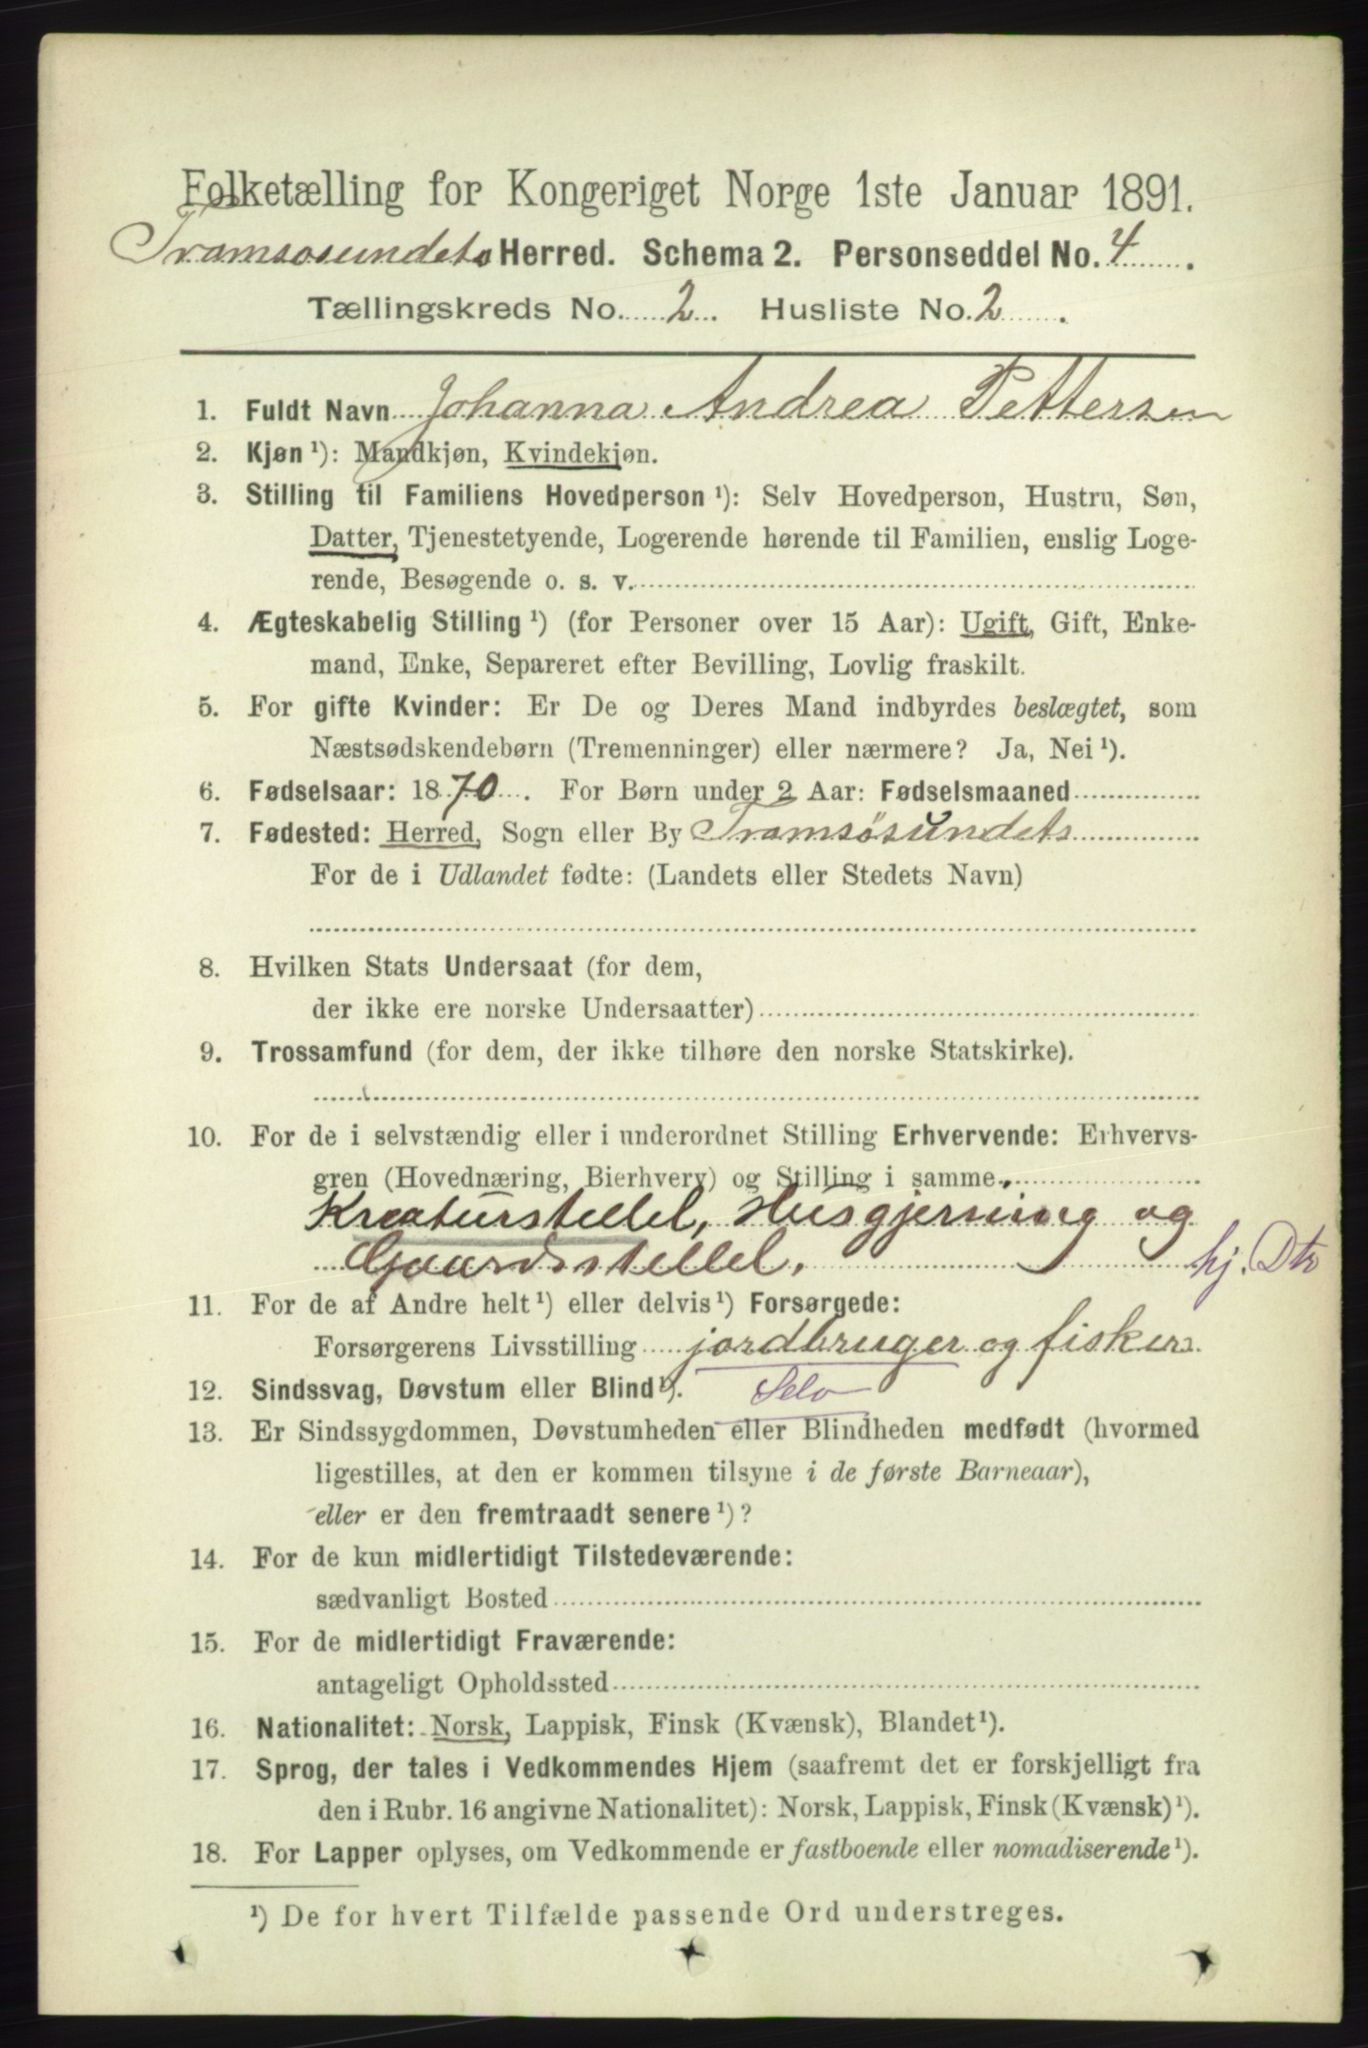 Folketælling for Kongeriget Norge 1ste Januar 1891.
Tromsøsundets Herred. Schema 2. Personseddel No. 4.
Tællingskreds No. 2. Husliste No. 2.
1. Fuldt Navn Johanna Andrea Pettersen
2. Kjøn ¹): Mandkjøn, Kvindekjøn.
3. Stilling til Familiens Hovedperson ¹): Selv Hovedperson, Hustru, Søn,
Datter, Tjenestetyende, Logerende hørende til Familien, enslig Loge-
rende, Besøgende o. s. v.
4. Ægteskabelig Stilling ¹) (for Personer over 15 Aar): Ugift, Gift, Enke-
mand, Enke, Separeret efter Bevilling, Lovlig fraskilt.
5. For gifte Kvinder: Er De og Deres Mand indbyrdes beslægtet, som
Næstsødskendebørn (Tremenninger) eller nærmere? Ja, Nei ¹).
6. Fødselsaar: 1870. For Børn under 2 Aar: Fødselsmaaned
7. Fødested: Herred, Sogn eller By Tromsøsundets
For de i Udlandet fødte: (Landets eller Stedets Navn)
8. Hvilken Stats Undersaat (for dem,
der ikke ere norske Undersaatter)
9. Trossamfund (for dem, der ikke tilhøre den norske Statskirke).
10. For de i selvstændig eller i underordnet Stilling Erhvervende: Erhvervs-
gren (Hovednæring, Bierhverv) og Stilling i samme.
Kreaturstellel, Husgjerning og
Gaardsstellel. hj. Dtr
11. For de af Andre helt ¹) eller delvis ¹) Forsørgede:
Forsørgerens Livsstilling jordbruger og fisker
12. Sindssvag, Døvstum eller Blind ¹). Selv
13. Er Sindssygdommen, Døvstumheden eller Blindheden medfødt (hvormed
ligestilles, at den er kommen tilsyne i de første Barneaar),
eller er den fremtraadt senere ¹)?
14. For de kun midlertidigt Tilstedeværende:
sædvanligt Bosted
15. For de midlertidigt Fraværende:
antageligt Opholdssted
16. Nationalitet: Norsk, Lappisk, Finsk (Kvænsk), Blandet ¹).
17. Sprog, der tales i Vedkommendes Hjem (saafremt det er forskjelligt fra
den i Rubr. 16 angivne Nationalitet): Norsk, Lappisk, Finsk (Kvænsk) ¹).
18. For Lapper oplyses, om Vedkommende er fastboende eller nomadiserende ¹).
¹) De for hvert Tilfælde passende Ord understreges.